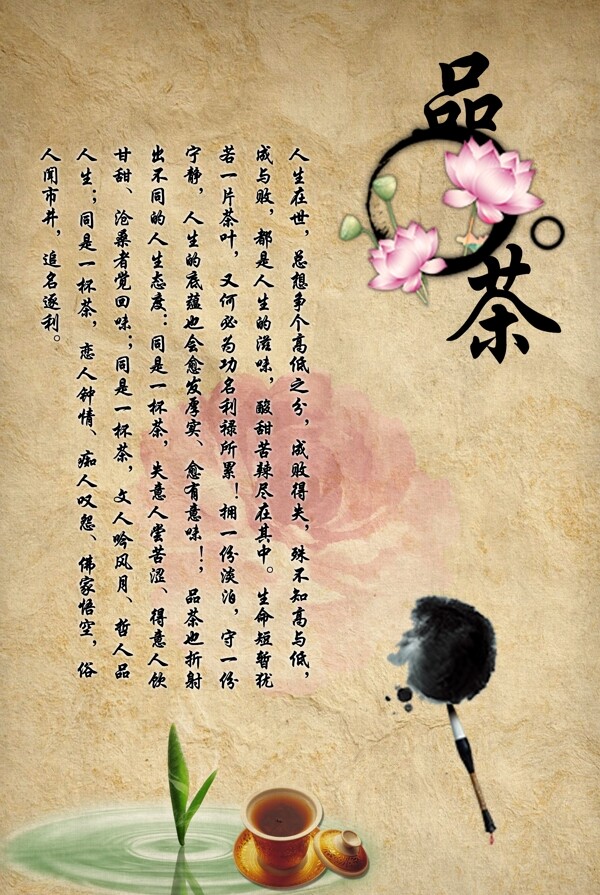 品茶
人生在世，总想争个高低之分，成败得失，殊不知高与低，
成与败，都是人生的滋味，酸甜苦辣尽在其中。生命短暂犹
若一片茶叶，又何必为功名利禄所累！拥一份淡泊，守一份
宁静，人生的底蕴也会愈发厚实、愈有意味！，品茶也折射
出不同的人生态度：同是一杯茶，失意人尝苦涩、得意人饮
甘甜、沧桑者觉回味；同是一杯茶，文人吟风月、哲人品
人生；同是一杯茶，恋人钟情、痴人叹怨、佛家悟空，俗
人闻市井，追名逐利。